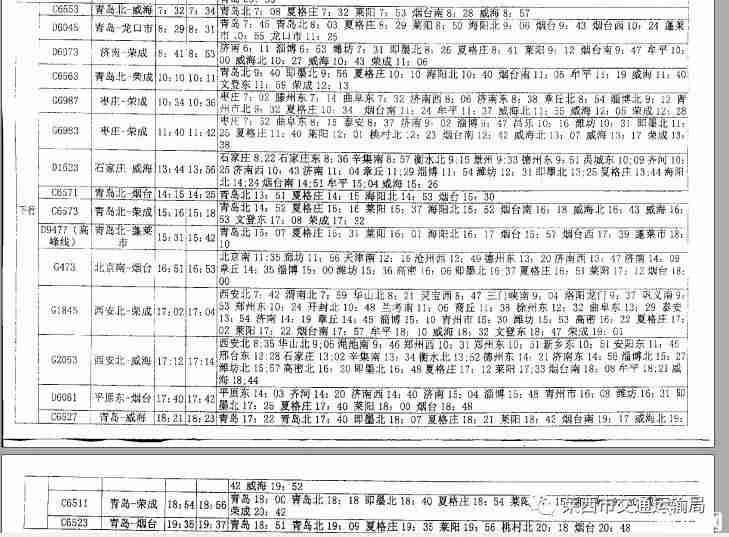 C6553 青岛北-威海 7:32 7:34 青岛北7:08 夏格庄7:32 莱阳7:53 烟台南8:28 威海8:57
D6045 青岛-龙口市 8:29 8:31 青岛7:45 青岛北8:03 夏格庄8:29 莱阳8:50 海阳北9:06 烟台9:43 烟台西10:24 蓬莱
市10:55 龙口市11:25
D6073 济南-荣成 8:41 8:53 济南6:11 淄博6:53 潍坊7:31 即墨北8:26 夏格庄8:41 莱阳9:12 烟台南9:47 牟平10:
00 威海北10:27 威海10:43 荣成11:06
C6563 青岛北-荣成 10:10 10:11 青岛北9:40 即墨北9:56 夏格庄10:10 海阳北10:40 烟台南11:05 牟平11:19 威海11:40
文登东11:59 荣成12:13
G6987 枣庄-荣成 10:34 10:36 枣庄7:02 滕州东7:14 曲阜东7:32 济南西8:06 济南东8:38 章丘北8:54 淄博北9:12 青
州市北9:32 夏格庄10:34 烟台南11:24 牟平11:37 威海北11:55 威海12:05 荣成12:28
G6983 枣庄-荣成 11:40 11:42 枣庄7:52 曲阜东8:15 泰安8:37 济南9:02 淄博9:47 昌乐10:16 潍坊10:31 即墨北11:
25 夏格庄11:40 莱阳12:01 桃村北12:23 烟台南12:42 威海北13:07 威海13:17 荣成13:
38
D1623 石家庄-威海 13:44 13:56 石家庄8:22 石家庄东8:36 辛集南8:57 衡水北9:15 景州9:33 德州东9:51 禹城东10:09 齐河10:
25 济南西10:43 济南11:04 章丘11:29 淄博11:54 潍坊12:31 即墨北13:25 夏格庄13:44 海阳
北14:24 烟台南14:51 牟平15:04 威海15:26
C6571 青岛北-烟台 14:15 14:25 青岛北13:51 夏格庄14:15 海阳北14:53 烟台15:30
下行 C6573 青岛北-荣成 15:16 15:18 青岛北14:52 夏格庄15:16 莱阳15:37 海阳北15:52 烟台南16:18 威海北16:43 威海16:
53 文登东17:08 荣成17:22
D9477(高峰线) 青岛北-蓬莱市 15:31 15:42 青岛北15:07 夏格庄15:31 海阳北16:17 烟台15:57 烟台西17:39 蓬莱市18:
10
G473 北京南-烟台 16:51 16:53 北京南11:35 廊坊11:56 天津南12:15 沧州西12:49 德州东13:20 济南西13:47 济南14:09
章丘14:35 淄博15:00 潍坊15:36 高密16:06 即墨北16:37 夏格庄16:51 莱阳17:12 烟台18:
00
G1845 西安北-荣成 17:02 17:04 西安北7:42 渭南北7:59 华山北8:21 灵宝西8:47 三门峡南9:04 洛阳龙门9:37 巩义南9:
53 郑州东10:24 开封北10:48 兰考南11:06 商丘11:38 徐州东12:32 曲阜东13:29 泰安
13:54 济南14:19 章丘14:45 淄博15:10 青州市15:30 潍坊15:53 高密16:22 夏格庄17:
02 莱阳17:22 烟台南17:57 牟平18:10 威海18:32 文登东18:47 荣成19:01
G2053 西安北-威海 17:12 17:14 西安北8:35 华山北9:06 渑池南9:46 郑州西10:31 郑州东10:51 新乡东10:51 安阳东11:45
邢台东12:28 石家庄13:02 辛集南13:34 衡水北13:52 德州东14:21 济南东14:56 淄博北15:27
潍坊北15:57 高密北16:20 即墨北16:48 夏格庄17:12 莱阳17:33 烟台南18:08 牟平18:21 威
海18:44
D6061 平原东-烟台 17:40 17:42 平原东14:03 齐河14:20 济南西14:40 济南15:04 淄博15:48 青州市16:08 潍坊16:31 即
墨北17:25 夏格庄17:40 莱阳18:00 烟台18:48
C6527 青岛-威海 18:21 18:23 青岛17:22 青岛北17:40 即墨北18:07 夏格庄18:21 莱阳18:42 烟台南19:17 威海北19:
42 威海19:52
C6511 青岛-荣成 18:54 18:56 青岛18:00 青岛北18:18 即墨北18:40 夏格庄18:54 莱阳
荣成20:42
C6523 青岛-烟台 19:35 19:37 青岛18:51 青岛北19:09 夏格庄19:35 莱阳19:56 桃村北20:18 烟台20:48
莱西市交通运输局